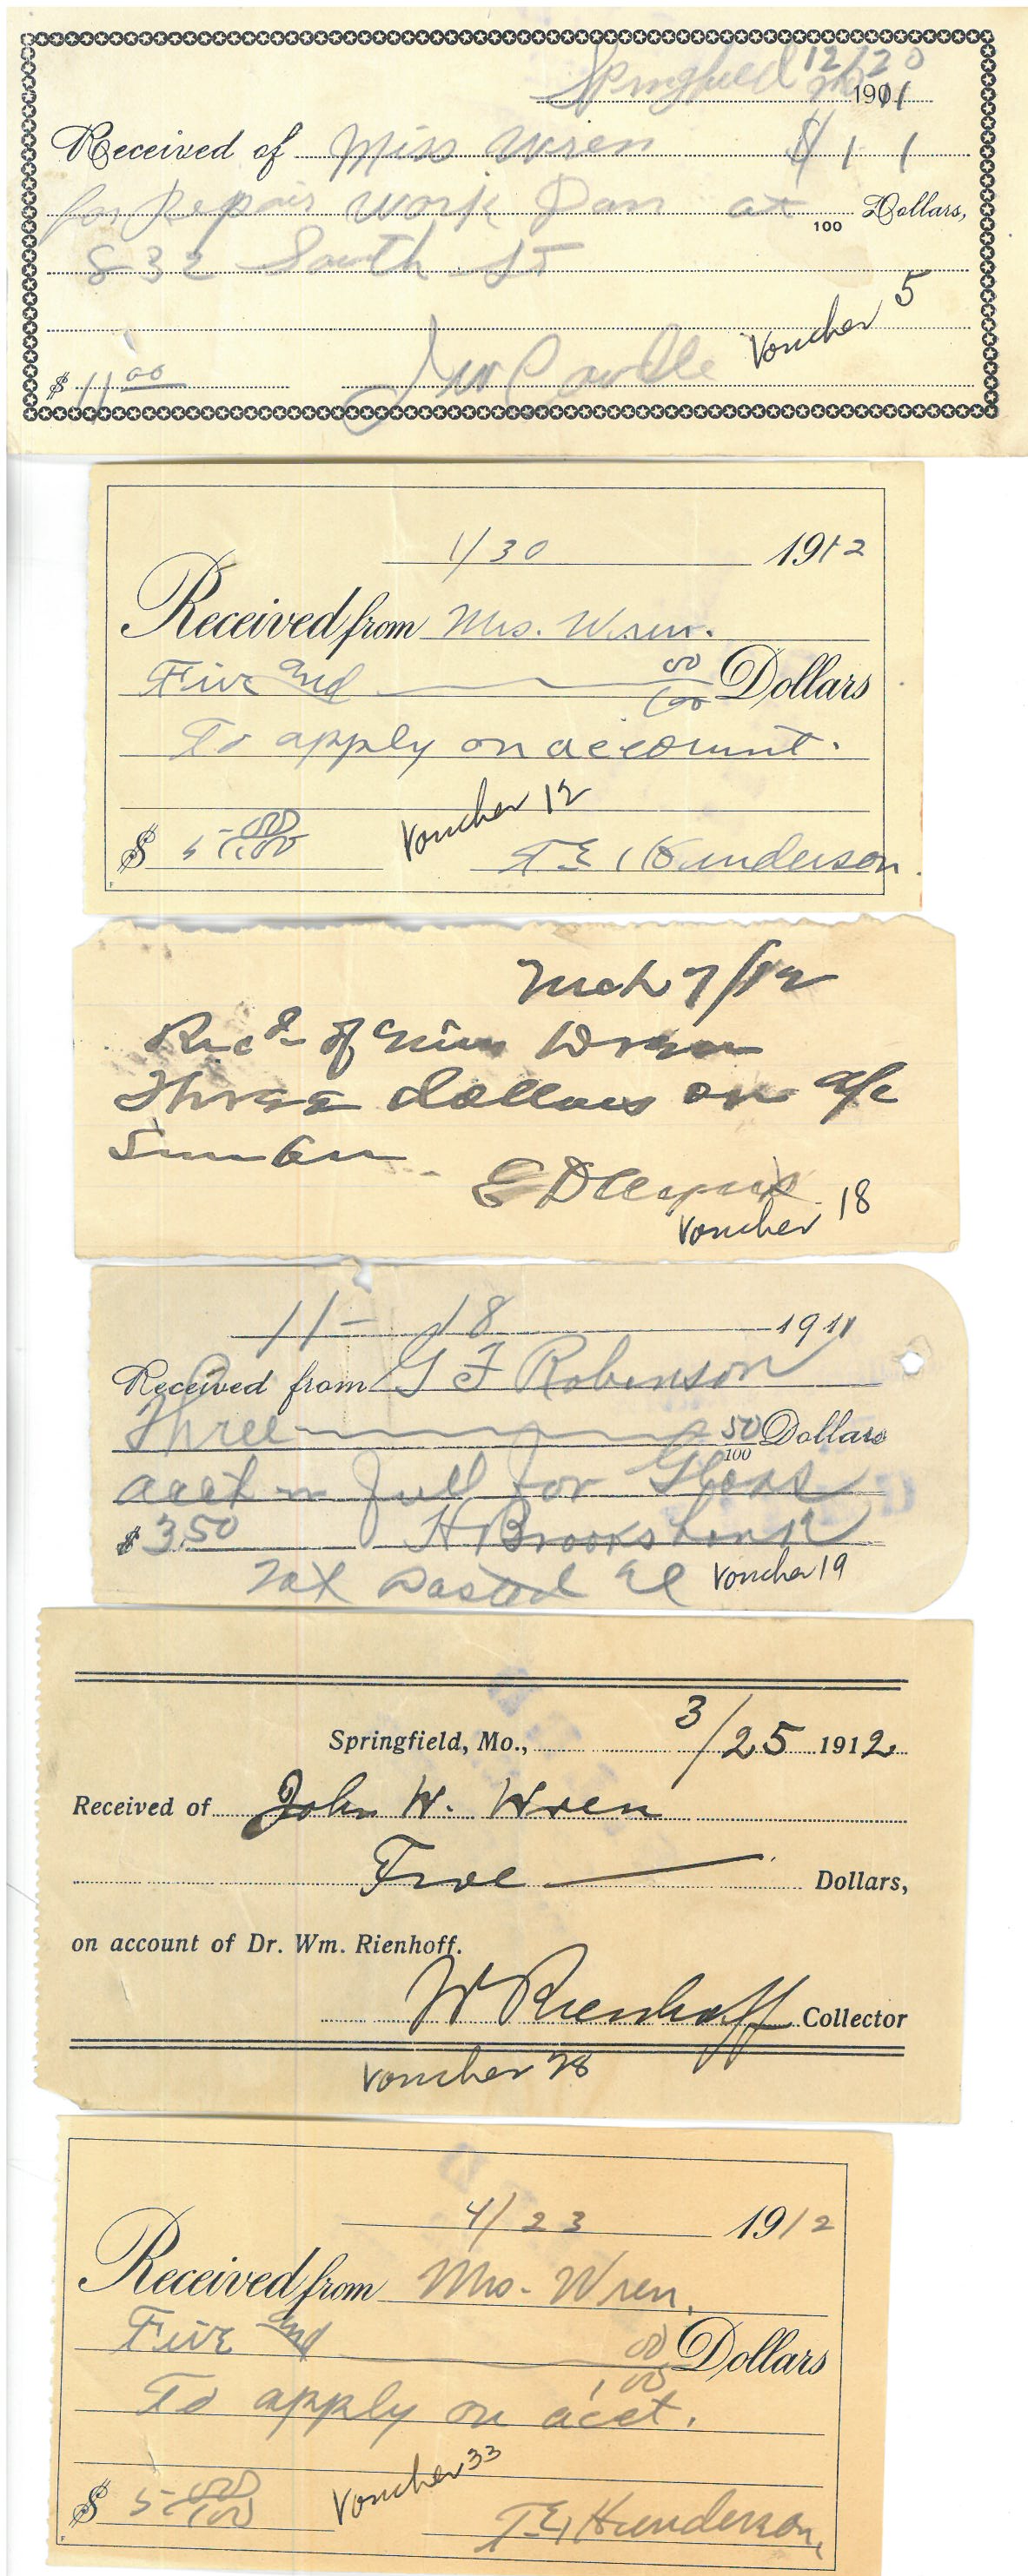 Springfield 12/20
Mo 1911
Received of Miss Wren $11
for Repair work Don at 100 Dollars,
832 South St
Voucher 5
$ 11 00 J W Cowdle
1/30 1912
Received from Mrs. Wren.
Five and 00/100 Dollars
To apply on account.
Voucher 12
$ 5 00/100 T.E. Hunderson
Mch 7/12
Rec'd of Miss Wren
Three dollars on a/c
E D
Voucher 18
11-18 1911
Received from G F Robinson
Three 50/100 Dollars
acct in full for Glass
$3.50 H Brooksbank
Voucher 19
Springfield, Mo., 3/25 1912
Received of John W. Wren
Five Dollars,
on account of Dr. Wm. Rienhoff.
W Rienhoff Collector
Voucher 28
4/23 1912
Received from Mrs. Wren.
Five and 00/100 Dollars
To apply on acct.
Voucher 33
$ 5 00/100 T.E. Hunderson,